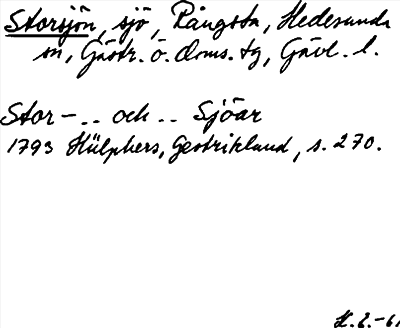 Storsjön, sjö, Rångsta, Hedesunda
sn, Gästr. ö. doms. tg, Gävl. l.
Stor- .. och .. Sjöar
1793 Hülphers, Gestrikland, s. 270.